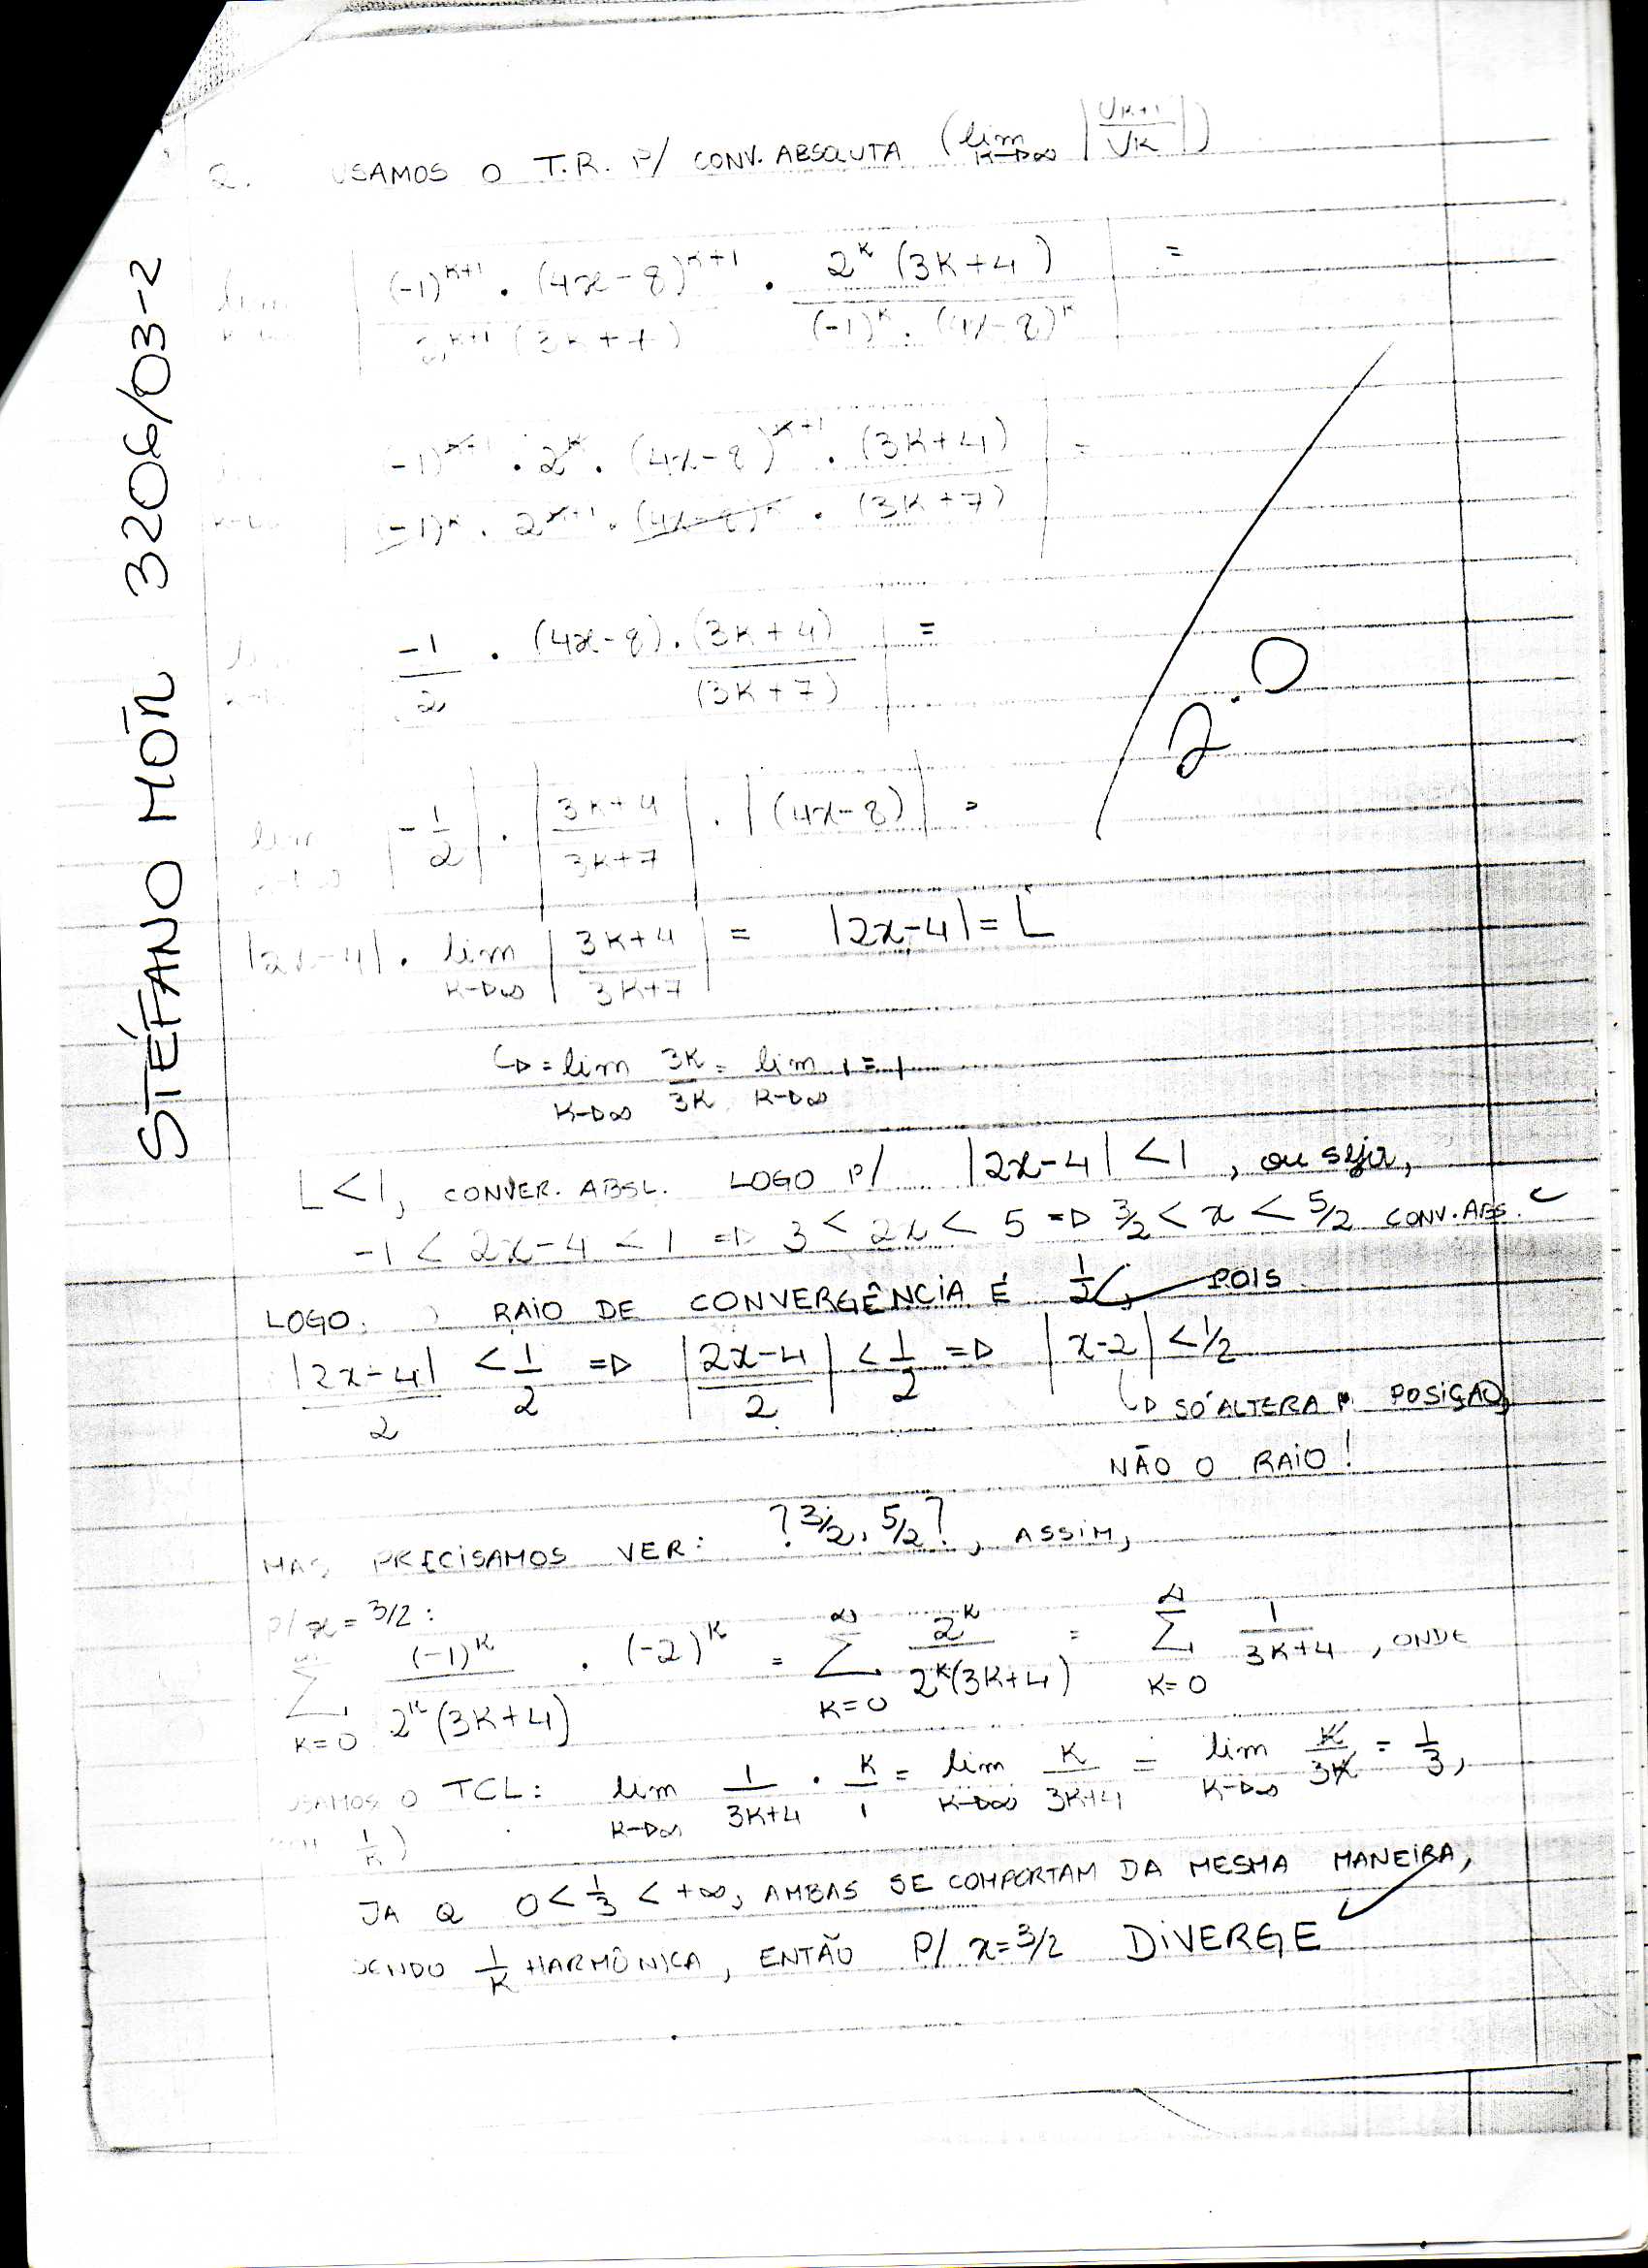 STÉFANO MOTA 3206/03-2
2. USAMOS O T.R. P/ CONV. ABSOLUTA (lim K→∞ |UK+1 / UK|)
lim | (-1)^K+1 . (4x-8)^K+1 / 2^K+1 (3K+7) . 2^K (3K+4) / (-1)^K . (4x-8)^K | =
| (-1)^K+1 . 2^K . (4x-8)^K+1 . (3K+4) / (-1)^K . 2^K+1 . (4x-8)^K . (3K+7) | =
-1/2 . (4x-8) . (3K+4)/(3K+7) | =
lim K→∞ |-1/2| . |3K+4 / 3K+7| . |(4x-8)| =
|2x-4| . lim K→∞ |3K+4 / 3K+7| = |2x-4| = L
↳ = lim K→∞ 3K/3K = lim K→∞ 1 = 1
2.0
L<1, CONVER. ABSL. LOGO P/ |2x-4| <1, ou seja,
-1 < 2x-4 < 1 ⇒ 3 < 2x < 5 ⇒ 3/2 < x < 5/2 CONV. ABS.
LOGO O RAIO DE CONVERGÊNCIA É 1/2, POIS
|2x-4|/2 < 1/2 ⇒ |2x-4 / 2| < 1/2 ⇒ |x-2| < 1/2
↳ SÓ ALTERA A POSIÇÃO,
NÃO O RAIO!
MAS PRECISAMOS VER: ?3/2, 5/2?, ASSIM,
P/ x = 3/2:
∞ Σ K=0 (-1)^K / 2^K(3K+4) . (-2)^K = ∞ Σ K=0 2^K / 2^K(3K+4) = ∞ Σ K=0 1 / 3K+4, ONDE
USAMOS O TCL: lim K→∞ 1/3K+4 . K/1 = lim K→∞ K/3K+4 = lim K→∞ K/3K = 1/3,
1/K)
JA Q 0 < 1/3 < +∞, AMBAS SE COMPORTAM DA MESMA MANEIRA,
SENDO 1/K HARMÔNICA, ENTÃO P/ x=3/2 DIVERGE